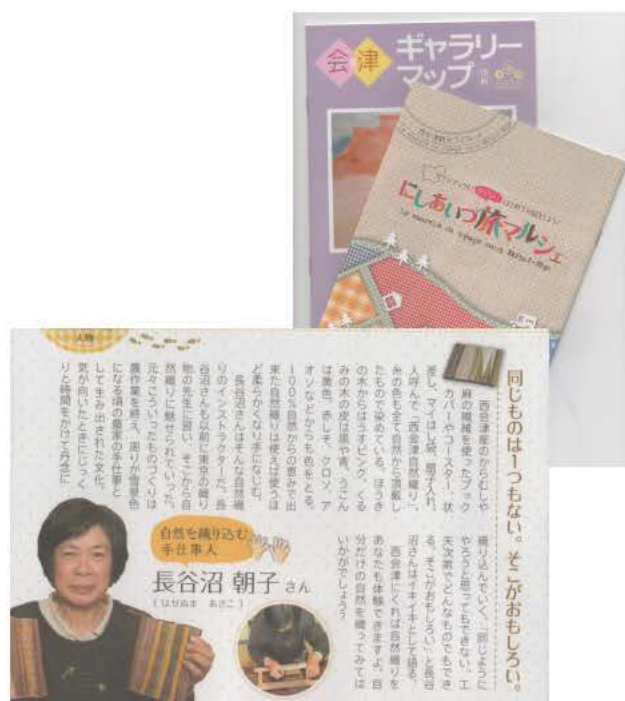 会津
ギャラリー
マップ
にしあいづ旅マルシェ
人物
同じものは1つもない。そこがおもしろい。
西会津産のからむしや
麻の繊維を使ったブック
カバーやコースター、状
差し、マイはし袋、扇子入れ。
人呼んで「西会津自然織り」。
糸の色も全て自然から頂戴し
たもので染めている。ほうき
の木からはうすピンク、くる
みの木の皮は黒や青、うこん
は黄色、赤しそ、クロソ、ア
オソなどからも色をとる。
100％自然からの恵みで出
来た自然織りは使えば使うほ
ど柔らかくなり手になじむ。
長谷沼さんはそんな自然織
りのインストラクターだ。長
谷沼さんも以前に東京の織り
物の先生に習い、そこから自
然織りに魅せられていった。
元々こういったものづくりは
農作業を終え、周りが雪景色
になる頃の農家の手仕事と
して生み出された文化。
気が向いたときにじっく
りと時間をかけて丹念に
織り込んでいく。「同じように
やろうと思ってもできない。工
夫次第でどんなものでもでき
る。そこがおもしろい」と長谷
沼さんはイキイキとして語る。
西会津にくれば自然織りを
あなたも体験できますよ。自
分だけの自然を織ってみては
いかがでしょう?
自然を織り込む
手仕事人
長谷沼 朝子 さん
（はせぬま あさこ）